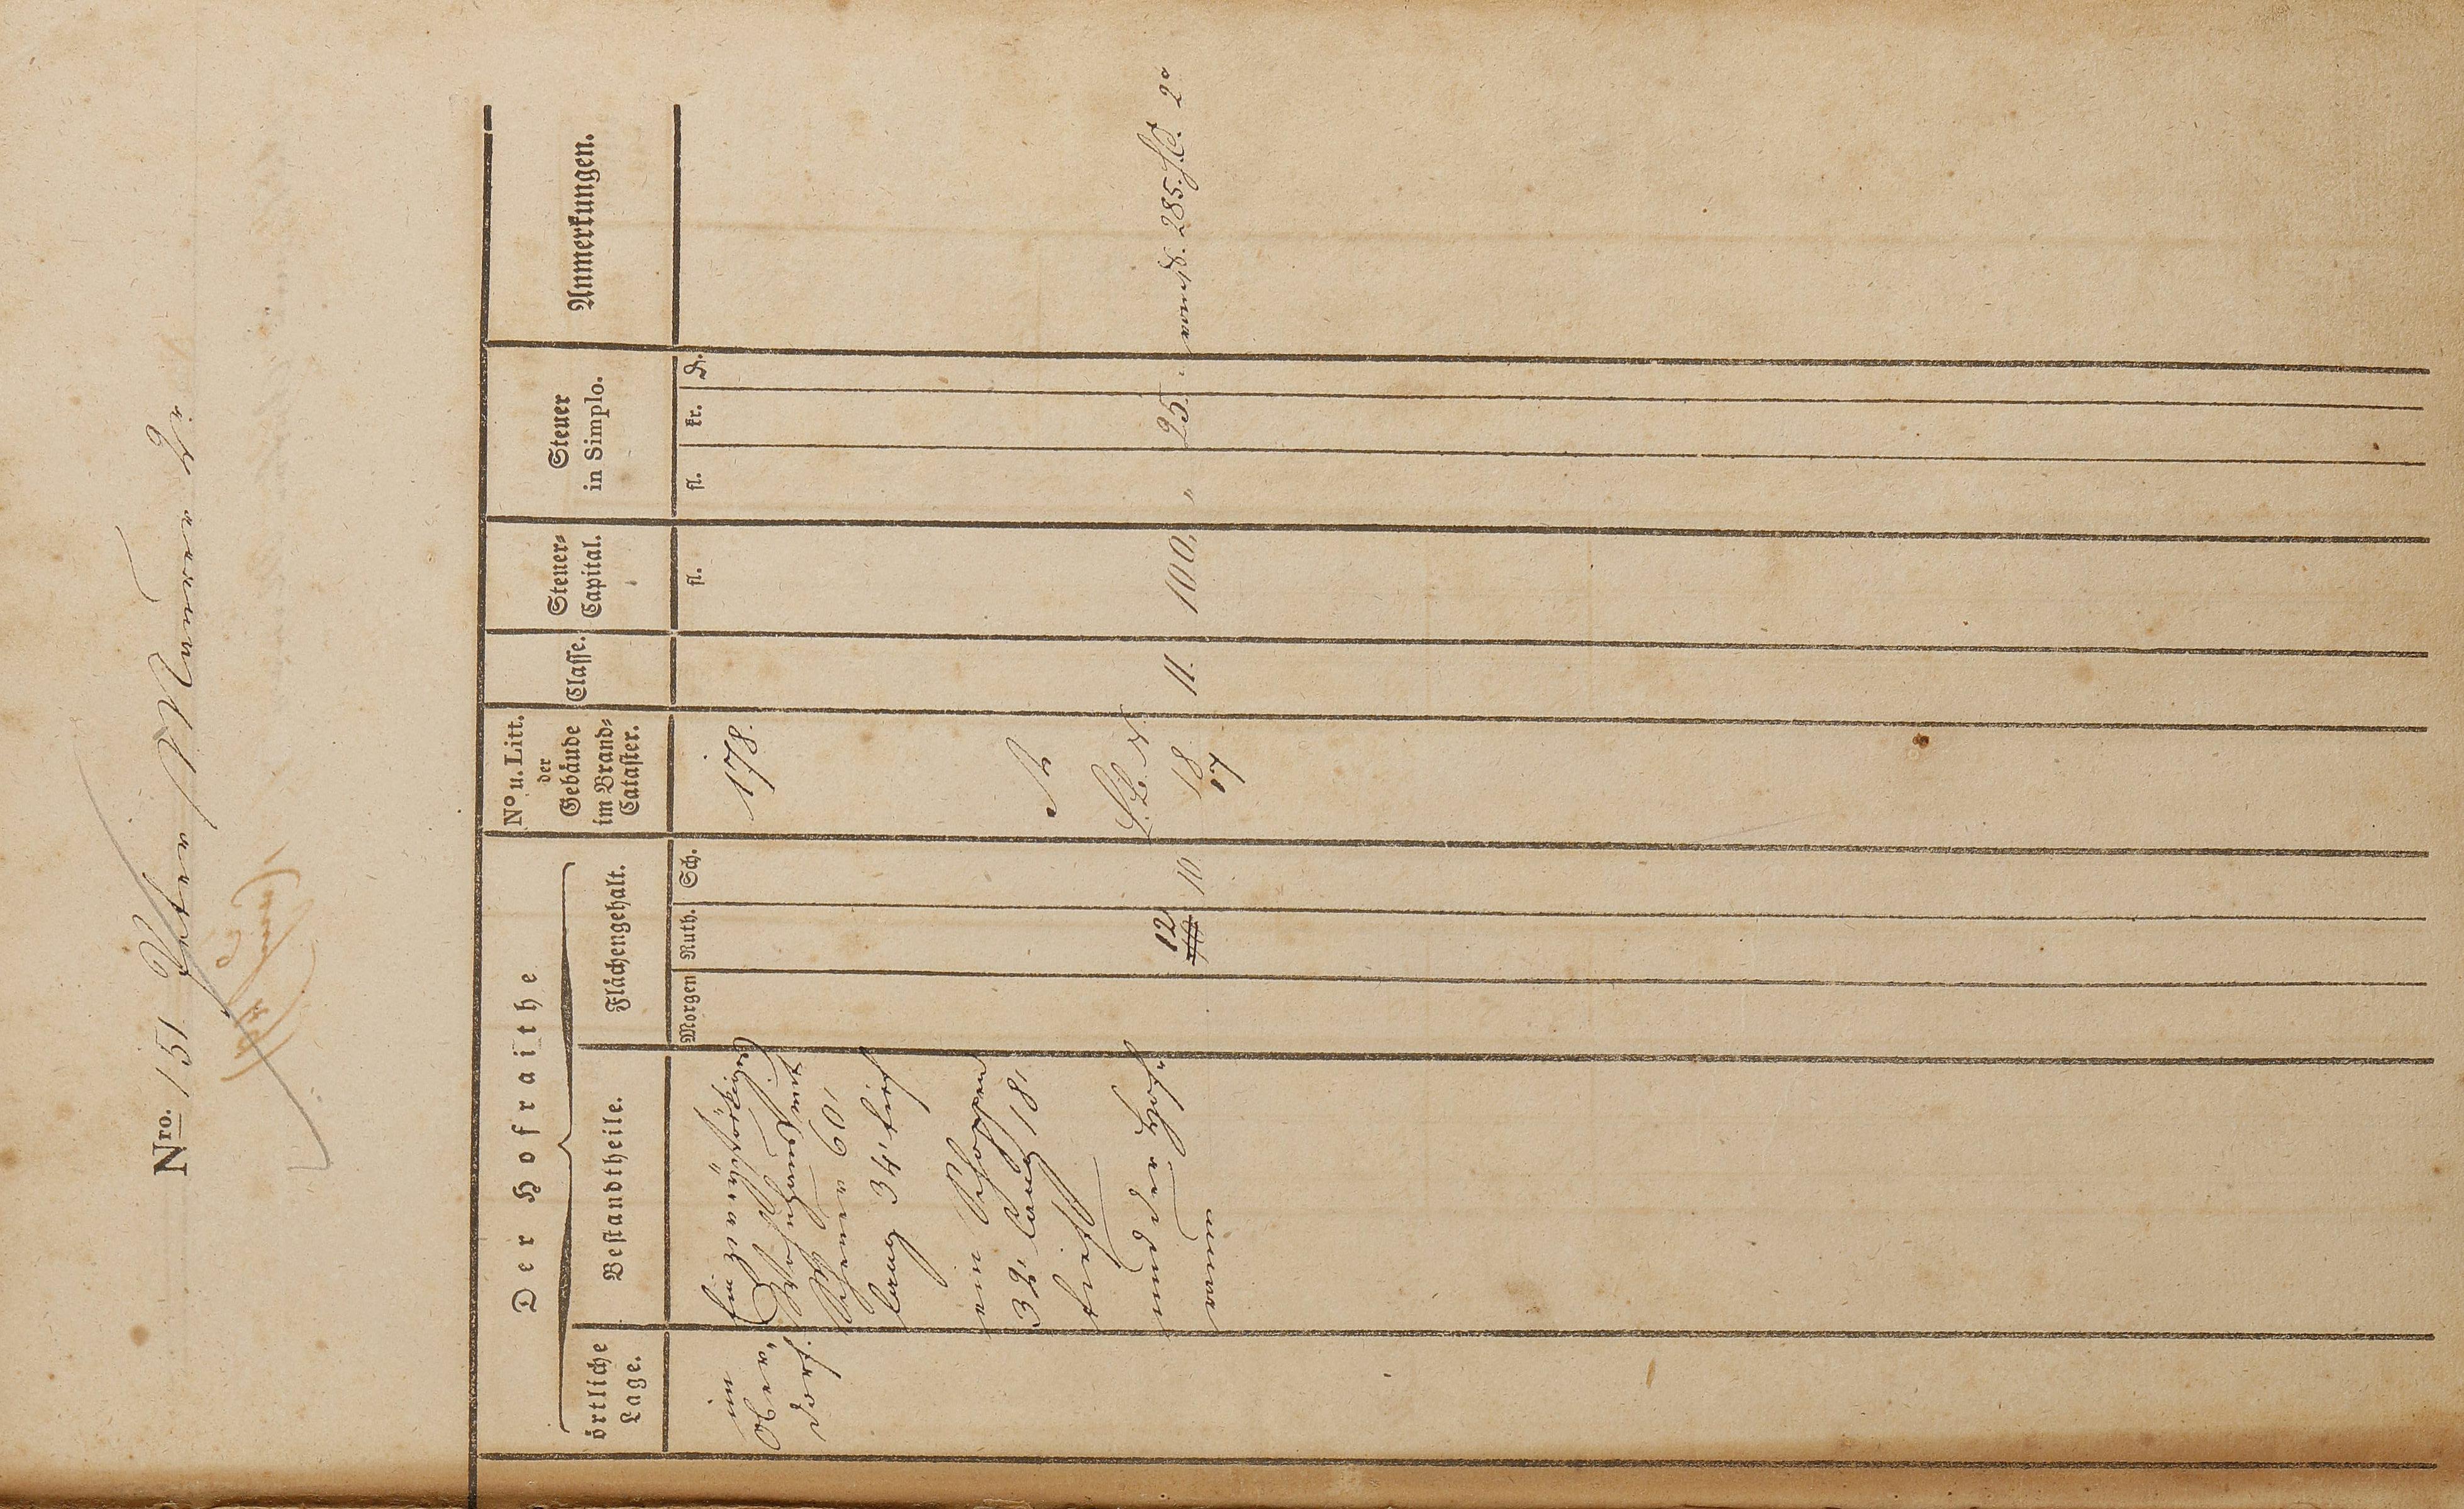 Nro. 151 Peter Maurer 2r
Der Hofraithe
örtliche Lage.
Bestandtheile.
Flächengehalt.
No u. Litt. der Gebäude im Brand-Cataster.
Classe.
Steuer-Capital.
Steuer in Simplo.
Anmerkungen.
Morgen Ruth. Sch. fl. fl. kr. D.
im
Ober,
dorf.
Ein zweistöckiges
Wohnhaus mit
Scheuer 60'
lang 34' tief
ein Schoppen
32' lang 18'
tief
und der Hof,
raum
178.
12 10
18
17
11. 100. " 25. 285. 2r